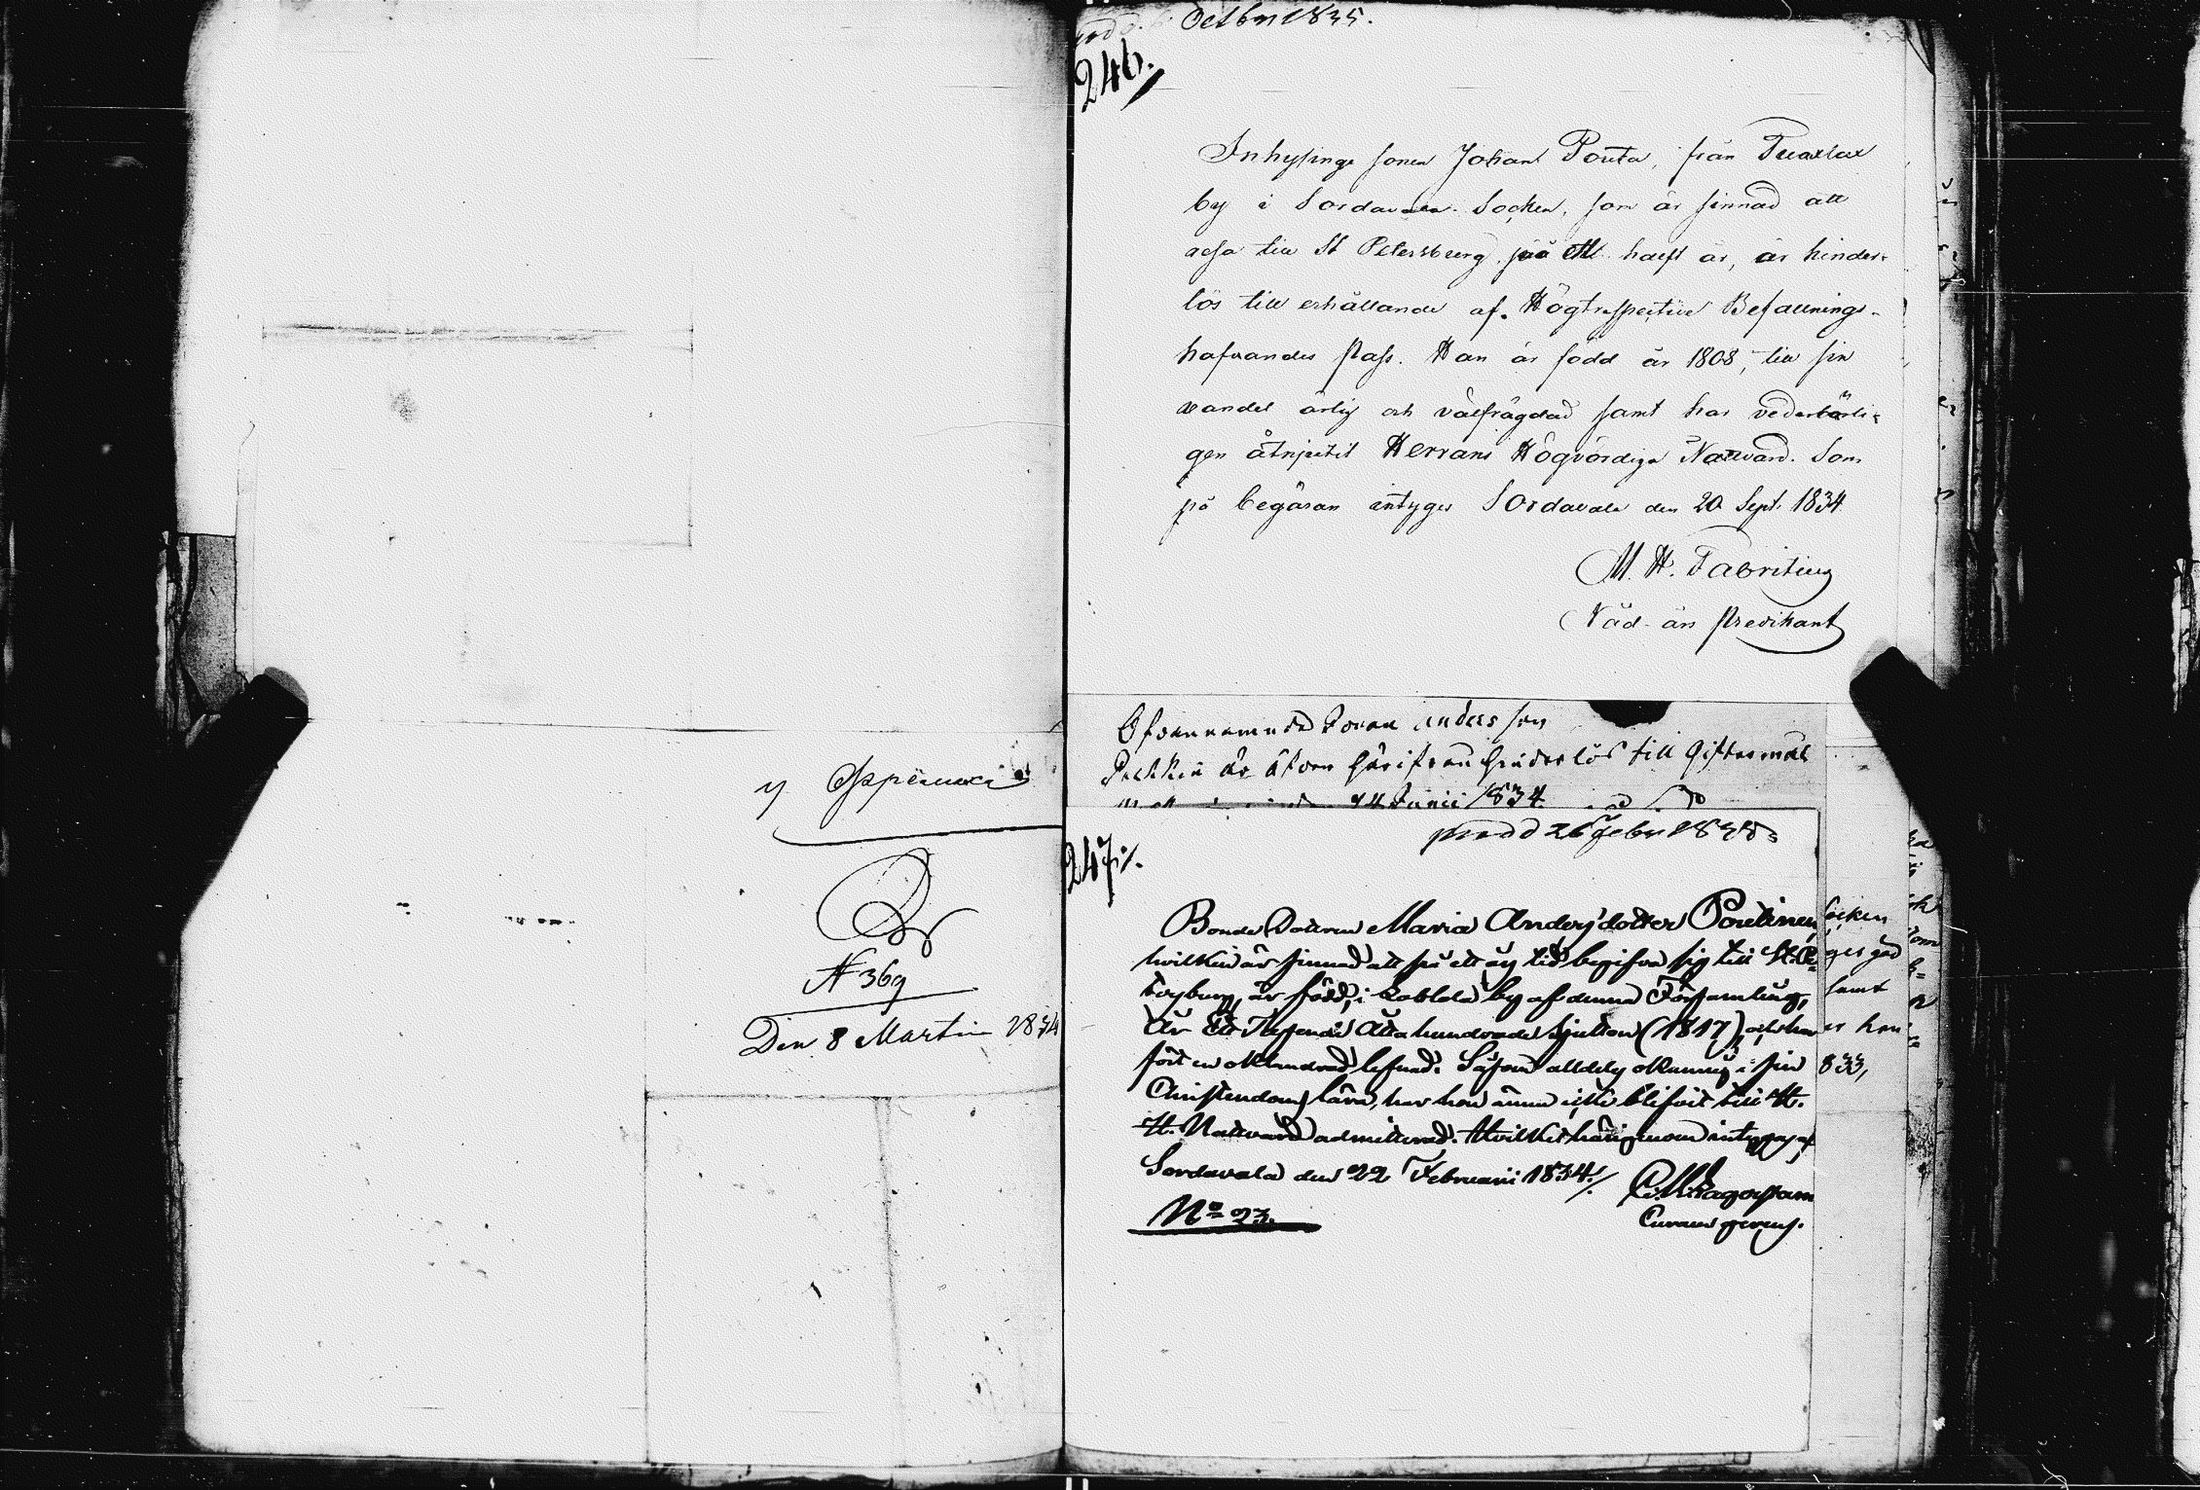 Den 8 Martii 1834
N 369
Octbr 1835.
246.
Inhysinge sonen Johan Pouta, från Tuaxlax
by i Sordavala Socken, som är sinnad att
resa till St Petersburg, på ett halft år, är hinder-
lös till erhållande af Högtrespective Befallnings-
hafvandes Pass. Han är född år 1808, till sin
vandel ärlig och välfrägdad samt har vederbörli-
gen åtnjutit Herrans Högvördiga Nattvard. Som
på begäran intyges Sordavala den 20 Sept. 1834
M. H. Fabritius
Nåd. års Predikant
Ofvannämnde Johan Andersson
är äfven härifrån hinderlös till Giftermål
14 Junii 1834
prodd 26 Febr 1835
247
Bonde Dottren Maria Andersdotter Poutinen,
hvilken är sinnad att på ett års tid begifva sig till St. Pe-
tersburg, är född i by af denna Församling,
år Ett Tusende Åtta hundrade Sjutton (1817), och har
fört en oklandrad lefnad. Såsom alldeles okunnig i sin
Christendoms lära, har hon ännu icke blifvit till H.
H. Nattvard admitterad. Hvilket härigenom intygas, af
Sordavala den 22 Februarii 1834.
Curam gerens.
No 23.
Socken
samt
833,